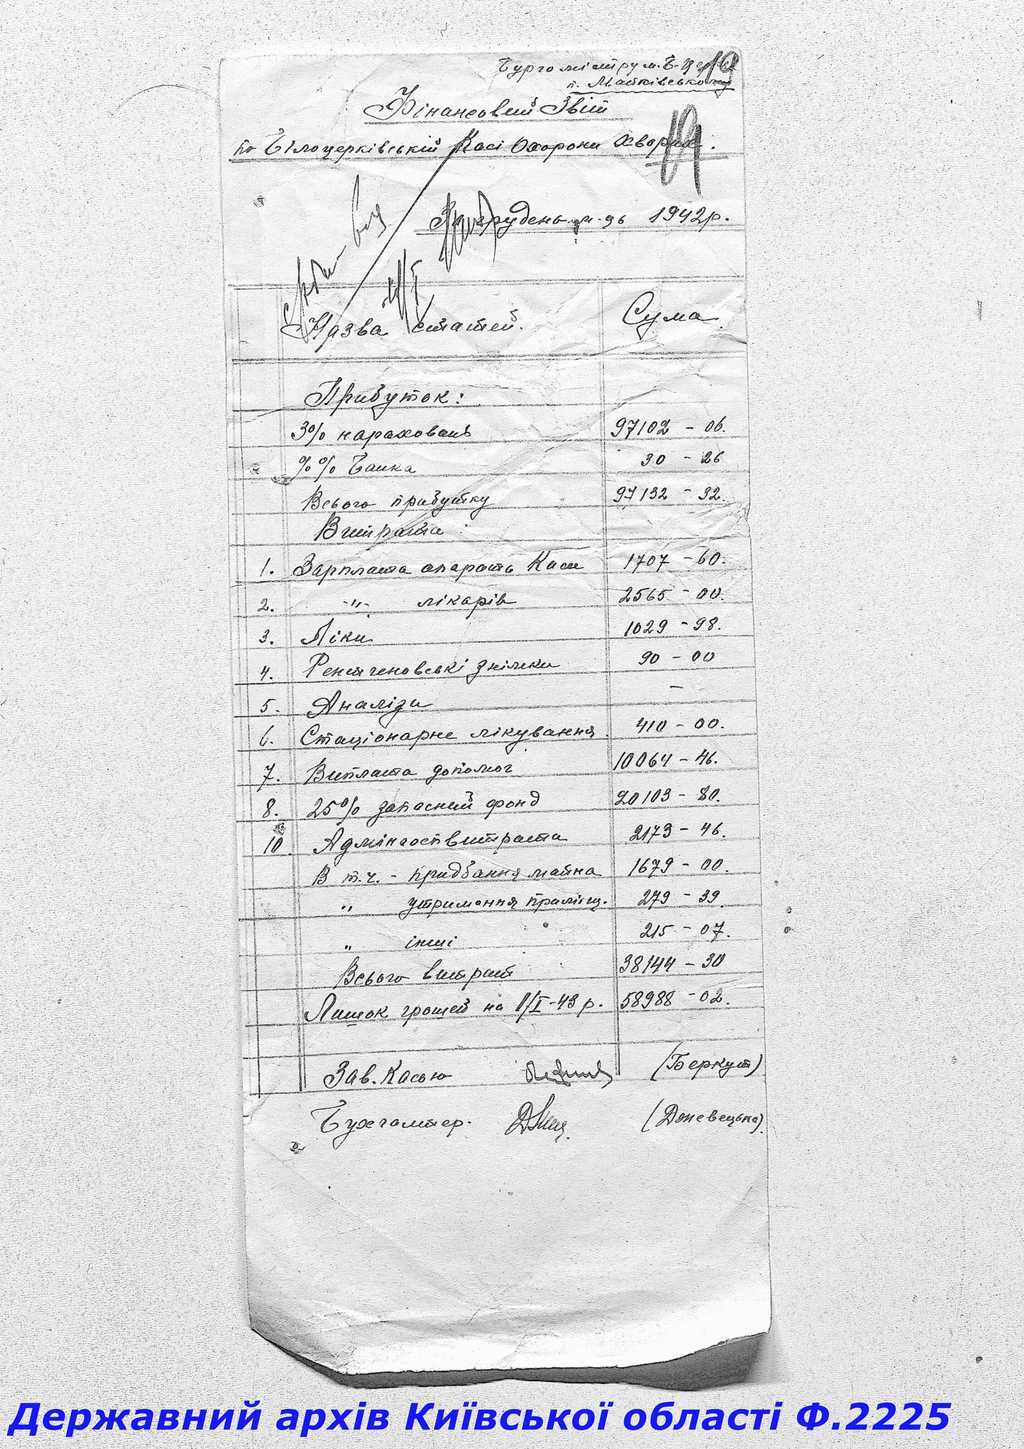 Бургомістру м. Б-Ц
п. Матківському
19
Фінансовий Звіт
по Білоцерківській Касі Охорони Хворих.
19
За грудень м-ць 1942 р.
Назва статей. Сума
Прибуток:
3% нараховань 97102 - 06.
%% Банка 30 - 26
Всього прибутку 97132 - 32.
Витрата:
1. Зарплата апарать Каси 1707 - 60.
2. -"- лікарів 2565 - 00.
3. Ліки 1029 - 98.
4. Рентгеновські знімки 90 - 00
5. Аналізи —
6. Стаціонарне лікування 410 - 00.
7. Виплата допомог 10064 - 46.
8. 25% запасний фонд 20103 - 80.
10 Адмінгоспвитрата 2173 - 46.
В т.ч. - придбання майна 1679 - 00.
" утримання приміщ. 279 - 39.
" інші 215 - 07.
Всього витрат 38144 - 30
Лишок грошей на 1/I-43 р. 58988 - 02.
Зав. Касою (Беркут)
Бухгалтер. (Доневецька)
Державний архів Київської області Ф.2225